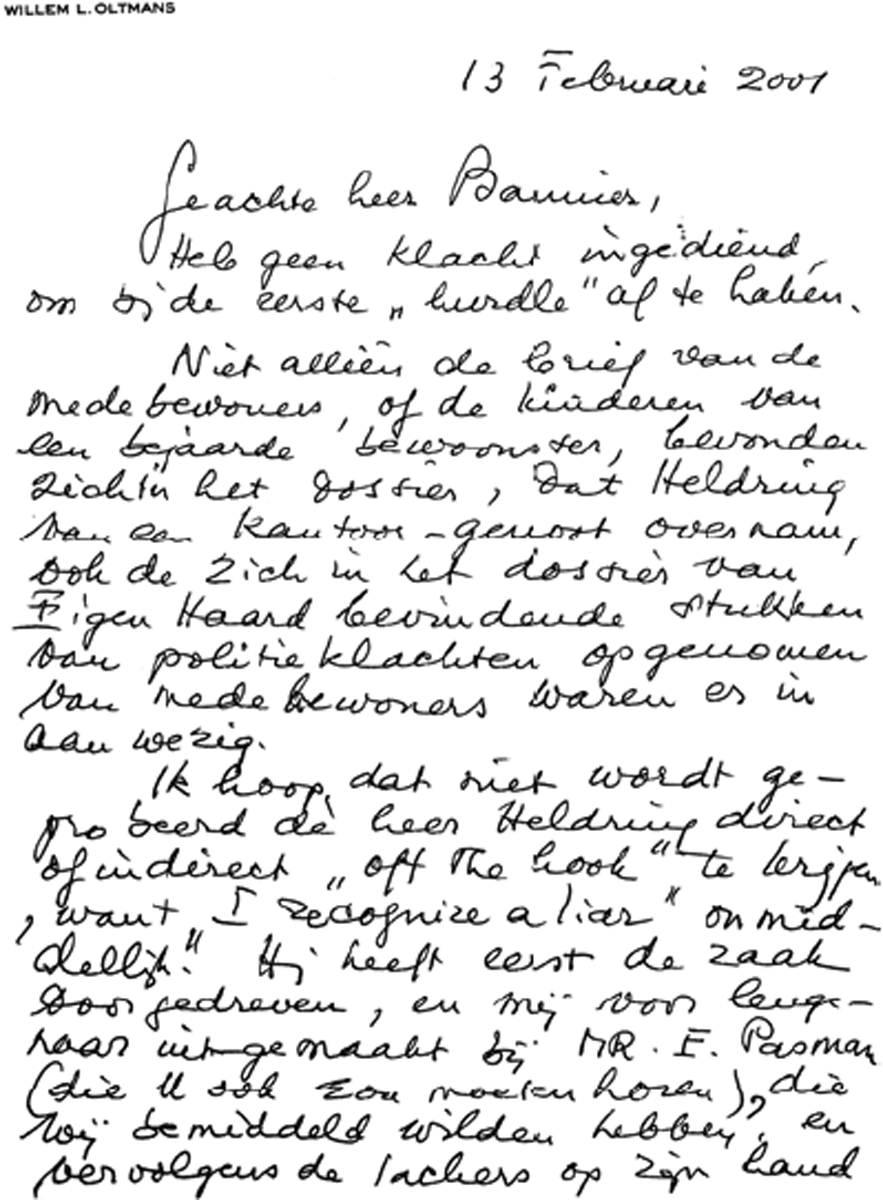 WILLEM L. OLTMANS
13 Februari 2001
Geachte heer Bannier,
Heb geen klacht ingediend,
om bij de eerste „hurdle" af te haken.
Niet alleen de brief van de
medebewoners, of de kinderen van
een bejaarde bewoonster, bevonden
zich in het dossier, dat Heldring
van een kantoor-genoot overnam,
ook de zich in het dossier van
Eigen Haard bevindende stukken
van politieklachten opgenomen
van medebewoners waren er in
aanwezig.
Ik hoop, dat niet wordt ge-
probeerd de heer Heldring direct
of indirect „off the hook" te krijgen
, want „I recognize a liar" onmid-
dellijk." Hij heeft eerst de zaak
doorgedreven, en mij voor leuge-
naar uitgemaakt bij MR. E. Pasman
(die U ook zou moeten horen), die
wij bemiddeld wilden hebben, en
vervolgens de lachers op zijn hand